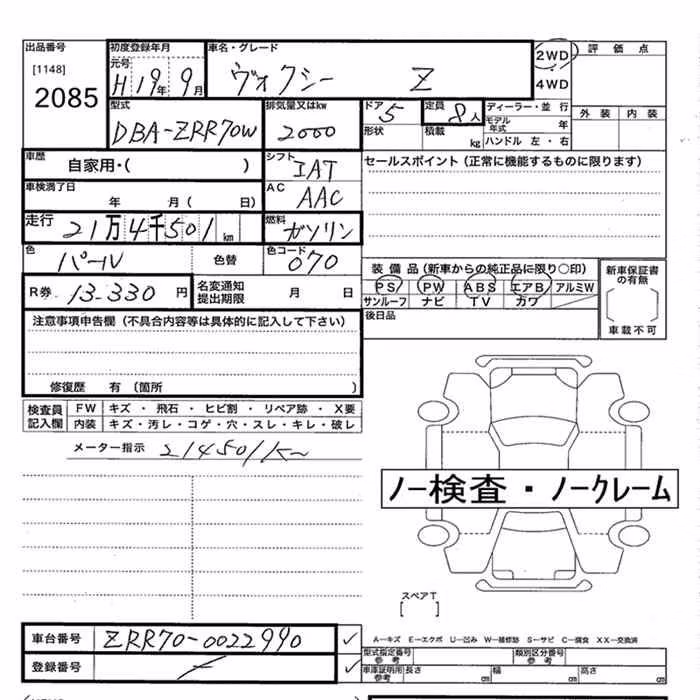 出品番号
[1148]
2085
初度登録年月
元号
H19年9月
車名・グレード
ヴォクシー Z
2WD
4WD
評価点
外装 内装
型式
DBA-ZRR70W
排気量又はkw
2000
ドア
5
形状
定員
8人
積載
kg
ディーラー・並行
モデル年式 年
ハンドル 左・右
車歴
自家用・( )
シフト
IAT
セールスポイント(正常に機能するものに限ります)
車検満了日
年 月( 日)
AC
AAC
走行
21万4千501km
燃料
ガソリン
色
パール
色替
色コード
070
装備品(新車からの純正品に限り○印)
PS PW ABS エアB アルミW
サンルーフ ナビ TV カワ
後日品
新車保証書の有無
車載不可
R券 13.330円
名変通知提出期限 月 日
注意事項申告欄(不具合内容等は具体的に記入して下さい)
修復歴 有(箇所 )
検査員記入欄
FW キズ・飛石・ヒビ割・リペア跡・X要
内装 キズ・汚レ・コゲ・穴・スレ・キレ・破レ
メーター指示 214501km
ノー検査・ノークレーム
スペアT
[ ]
車台番号 ZRR70-0022990 ✓
登録番号 ✓
A-キズ E-エクボ U-凹み W-補修跡 S-サビ C-腐食 XX-交換済
型式指定番号参考 類別区分番号参考
車庫証明用参考 長さ cm 幅 cm 高さ cm